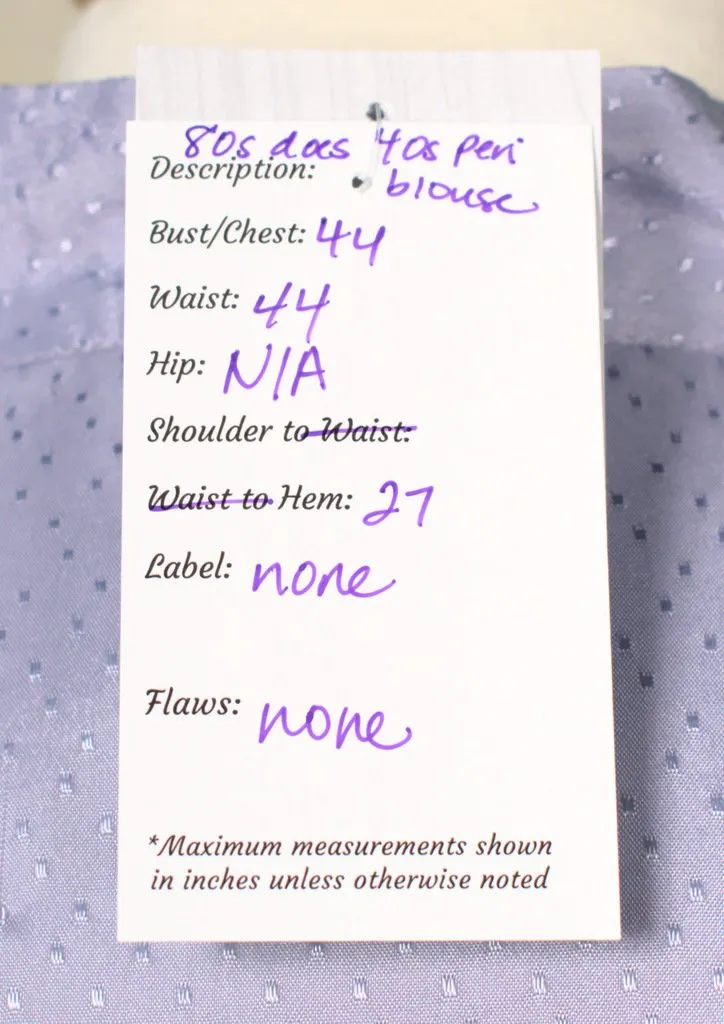 80s does 40s peri
Description: blouse
Bust/Chest: 44
Waist: 44
Hip: N/A
Shoulder to Waist:
Waist to Hem: 27
Label: none
Flaws: none
*Maximum measurements shown
in inches unless otherwise noted